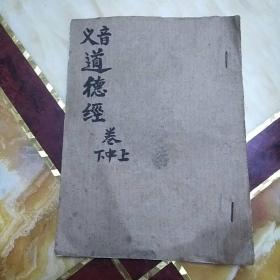 音义
道德經
卷
上中下